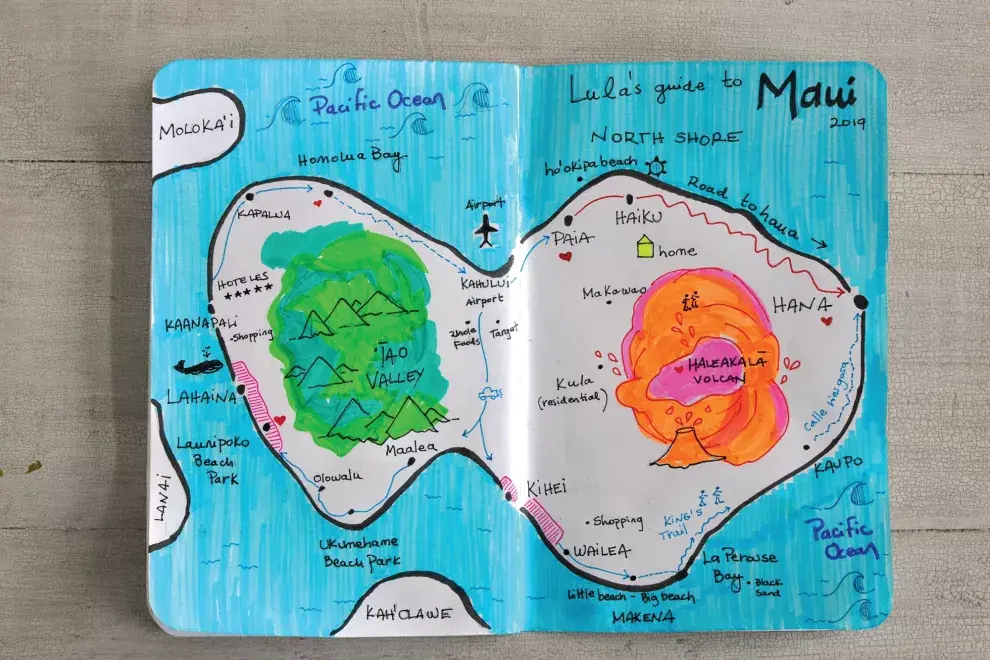 Lula's guide to Maui
2019
MOLOKA'I
Pacific Ocean
Honolua Bay
KAPALUA
HOTELES
KAANAPALI
Shopping
LAHAINA
Launipoko
Beach
Park
LANAI
Olowalu
Ukumehame
Beach Park
Maalea
ĪAO
VALLEY
Airport
KAHULUI
Airport
Whole
Foods
Target
KAH'OLAWE
NORTH SHORE
ho'okipa beach
Road to hana
PAIA
HAIKU
home
Makawao
HANA
Kula
(residential)
HALEAKALĀ
VOLCAN
KAUPO
KIHEI
Shopping
WAILEA
KING'S
Trail
La Perouse
Bay
Black
Sand
Little beach - Big beach
MAKENA
Pacific
Ocean